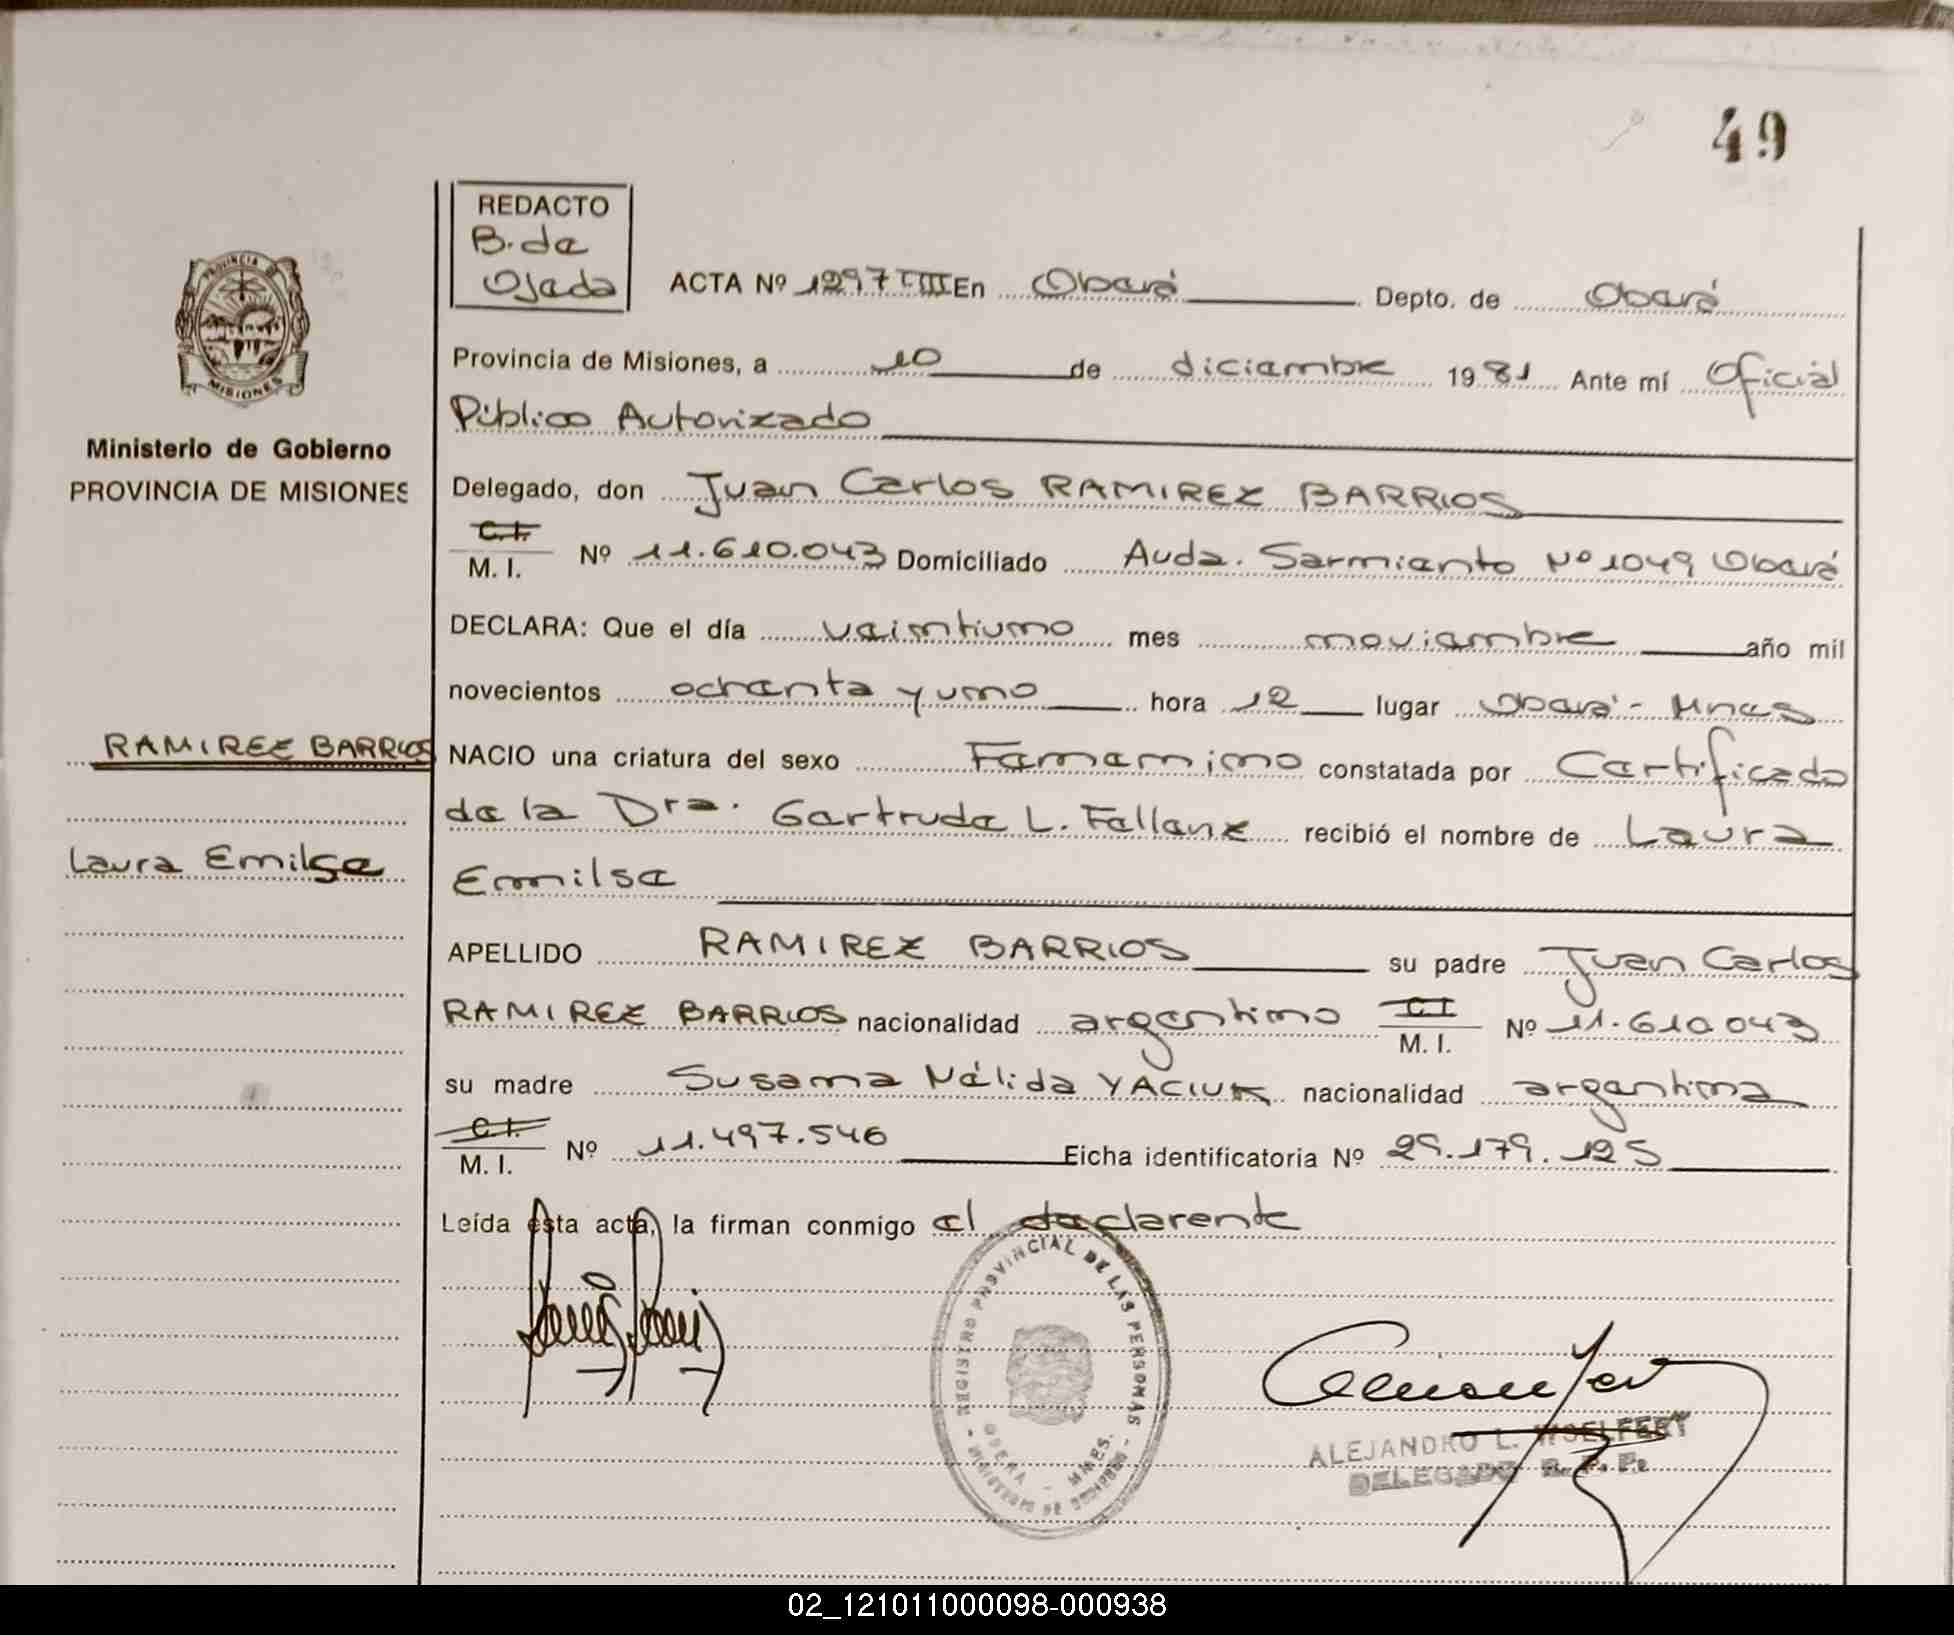 49
REDACTO
B. de
Ojeda
ACTA Nº 1297 TIII En Oberá Depto. de Oberá
Provincia de Misiones, a 10 de diciembre 1981 Ante mí Oficial
Público Autorizado
PROVINCIA DE MISIONES
Ministerio de Gobierno
PROVINCIA DE MISIONES
Delegado, don Juan Carlos RAMIREZ BARRIOS
C.I.
M. I. Nº 11.610.043 Domiciliado Avda. Sarmiento Nº 1049 Oberá
DECLARA: Que el día veintiuno mes noviembre año mil
novecientos ochenta y uno hora 12 lugar Oberá - Mnes
RAMIREZ BARRIOS
NACIO una criatura del sexo Femenino constatada por Certificado
de la Dra. Gertrude L. Fallenz recibió el nombre de Laura
Laura Emilse
Emilse
APELLIDO RAMIREZ BARRIOS su padre Juan Carlos
RAMIREZ BARRIOS nacionalidad argentino C.I.
M. I. Nº 11.610.043
su madre Susana Nélida YACIUK nacionalidad argentina
C.I.
M. I. Nº 11.497.546 Ficha identificatoria Nº 29.179.125
Leída esta acta, la firman conmigo el declarente
REGISTRO PROVINCIAL DE LAS PERSONAS
OBERA - MNES.
MINISTERIO DE GOBIERNO
ALEJANDRO L. WOELFERT
DELEGADO R. P. P.
02_121011000098-000938